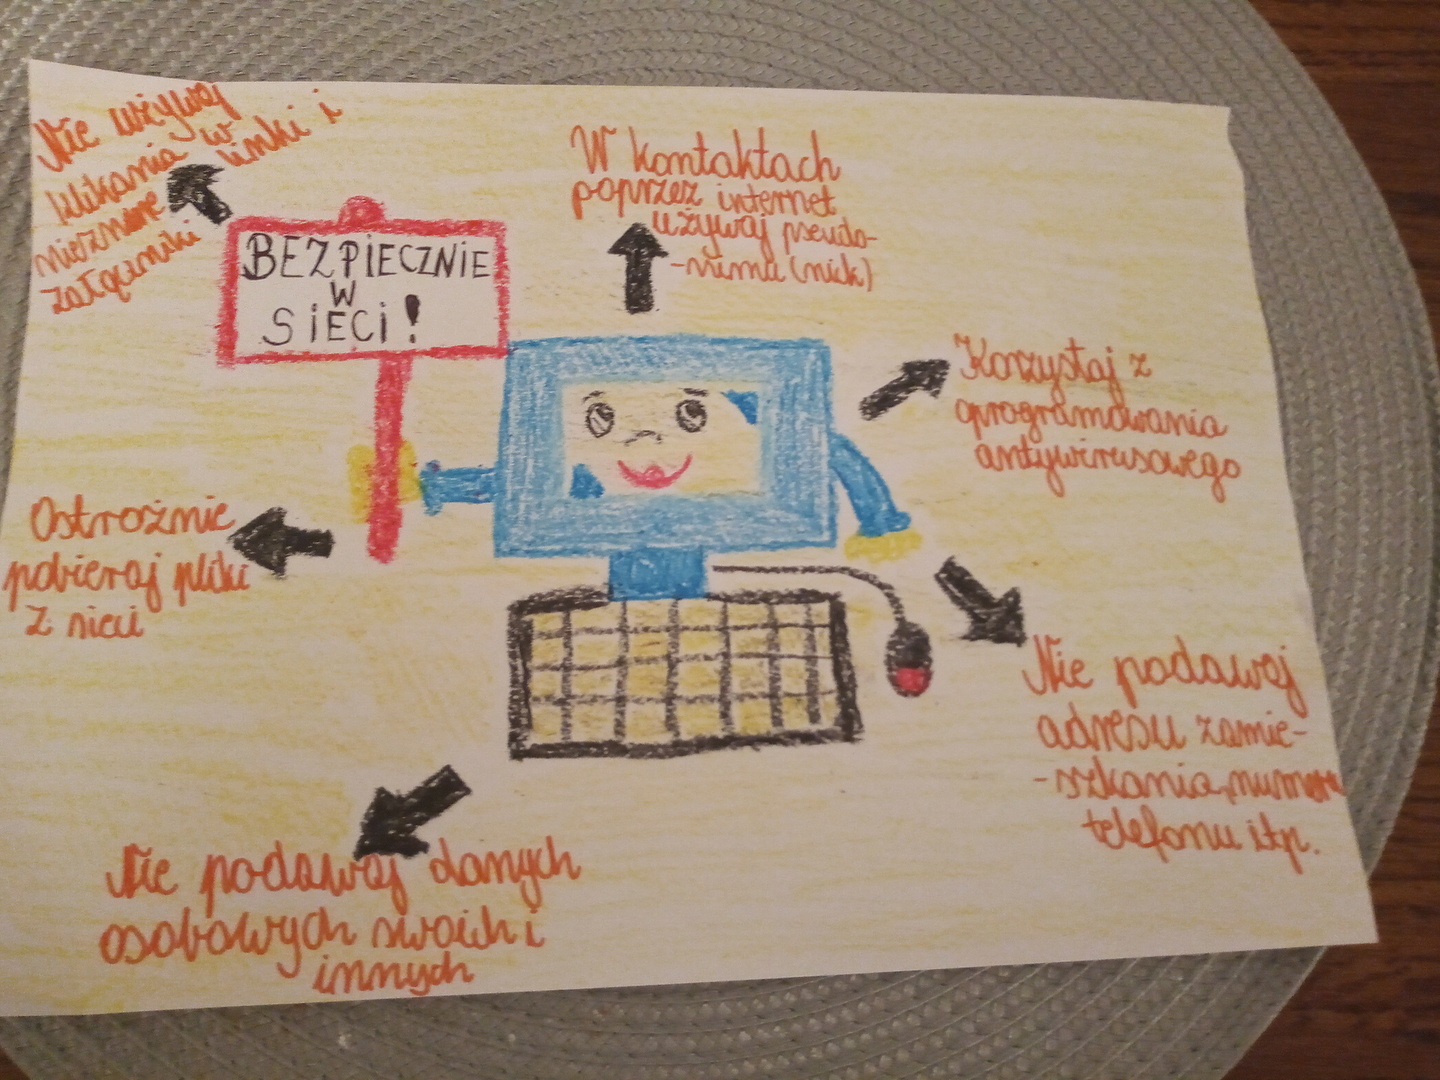 Nie używaj
klikania w linki i
nieznane
załączniki
BEZPIECZNIE
W
SIECI!
W kontaktach
poprzez internet
używaj pseudo-
-nima (nick)
Korzystaj z
oprogramowania
antywirusowego
Ostrożnie
pobieraj pliki
z sieci
Nie podawaj
adresu zamie-
-szkania, numeru
telefonu itp.
Nie podawaj danych
osobowych swoich i
innych